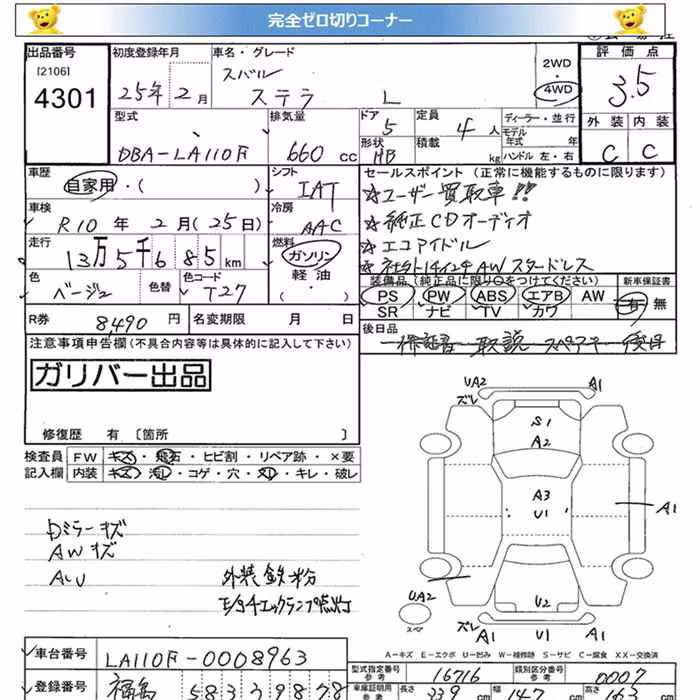 完全ゼロ切りコーナー
出品番号 初度登録年月 車名・グレード 評価点
[2106] スバル 2WD
4301 25年 2月 ステラ L 4WD 3.5
型式 排気量 ドア 定員 ディーラー・並行 外装 内装
5 4人 モデル年式 年
DBA-LA110F 660cc 形状 積載 C C
HB kg ハンドル 左・右
車歴 シフト セールスポイント(正常に機能するものに限ります)
自家用・( ) IAT ☆ユーザー買取車!!
車検 冷房 ☆純正CDオーディオ
R10年 2月(25日) AAC ☆エコアイドル
走行 燃料
13万5千685km ガソリン ☆社外14インチAWスタッドレス
色 色替 色コード 軽油 装備品(純正品に限り○をつけてください) 新車保証書
ベージュ T27 ( ) PS PW ABS エアB AW 有 無
SR ナビ TV カワ
R券 8,490円 名変期限 月 日 後日品
注意事項申告欄(不具合内容等は具体的に記入して下さい) 保証書 取説 スペアキー 後日
ガリバー出品
修復歴 有 〔箇所 〕
検査員 FW キズ・飛石・ヒビ割・リペア跡・×要
記入欄 内装 キズ・汚レ・コゲ・穴・スレ・キレ・破レ
UA2 A1
ズレ
S1
A2
A3
U1 A1
Dミラーキズ
AWキズ
ALU 外装鉄粉
エンジンチェックランプ点灯
U2
UA2
スペア
ズレ A1 U1 A1
A-キズ E-エクボ U-凹ミ W-補修跡 S-サビ C-腐食 XX-交換済
車台番号 LA110F-0008963
型式指定番号 参考 16716 類別区分番号 参考 0007
登録番号 福島 583 車庫証明用 参考 長さ 339 cm 幅 147 cm 高さ cm